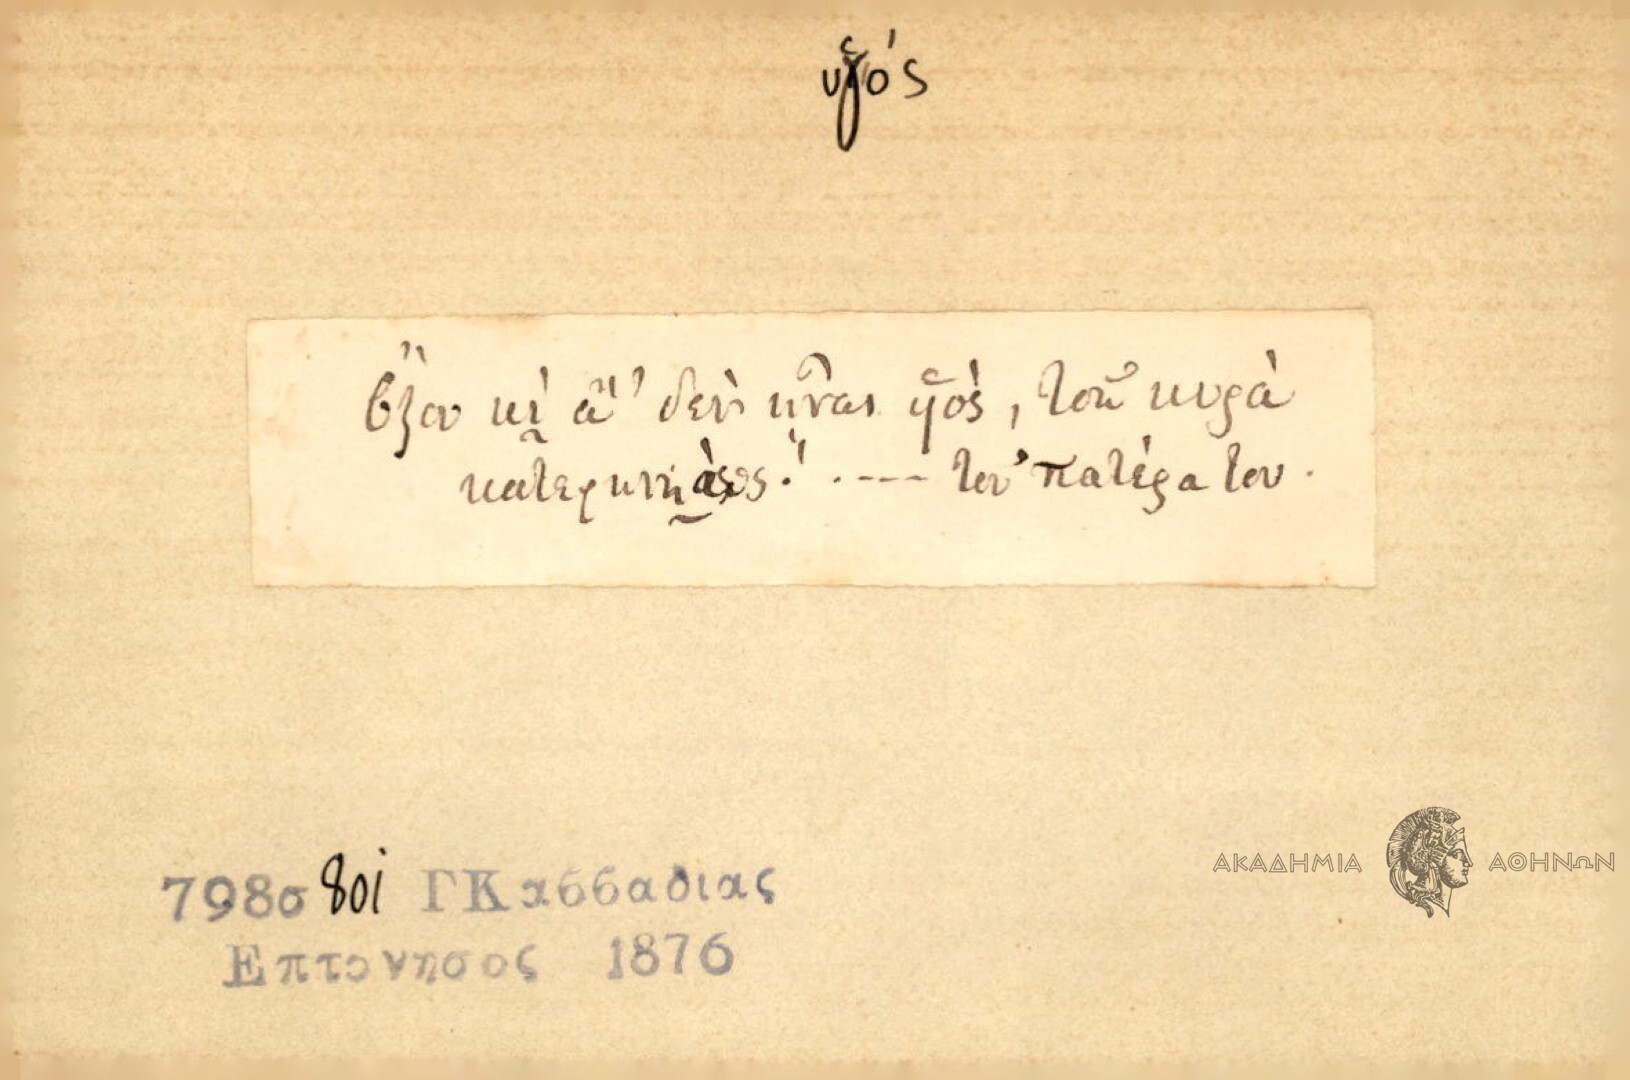 υἱός
κι̯ ἂ' δὲν ἦναι γυιὸς, τοῦ κυρὰ
τοῦ πατέρα του.
798σ 80i ΓΚαββαδιας
Επτανησος 1876
ΑΚΑΔΗΜΙΑ ΑΘΗΝΩΝ